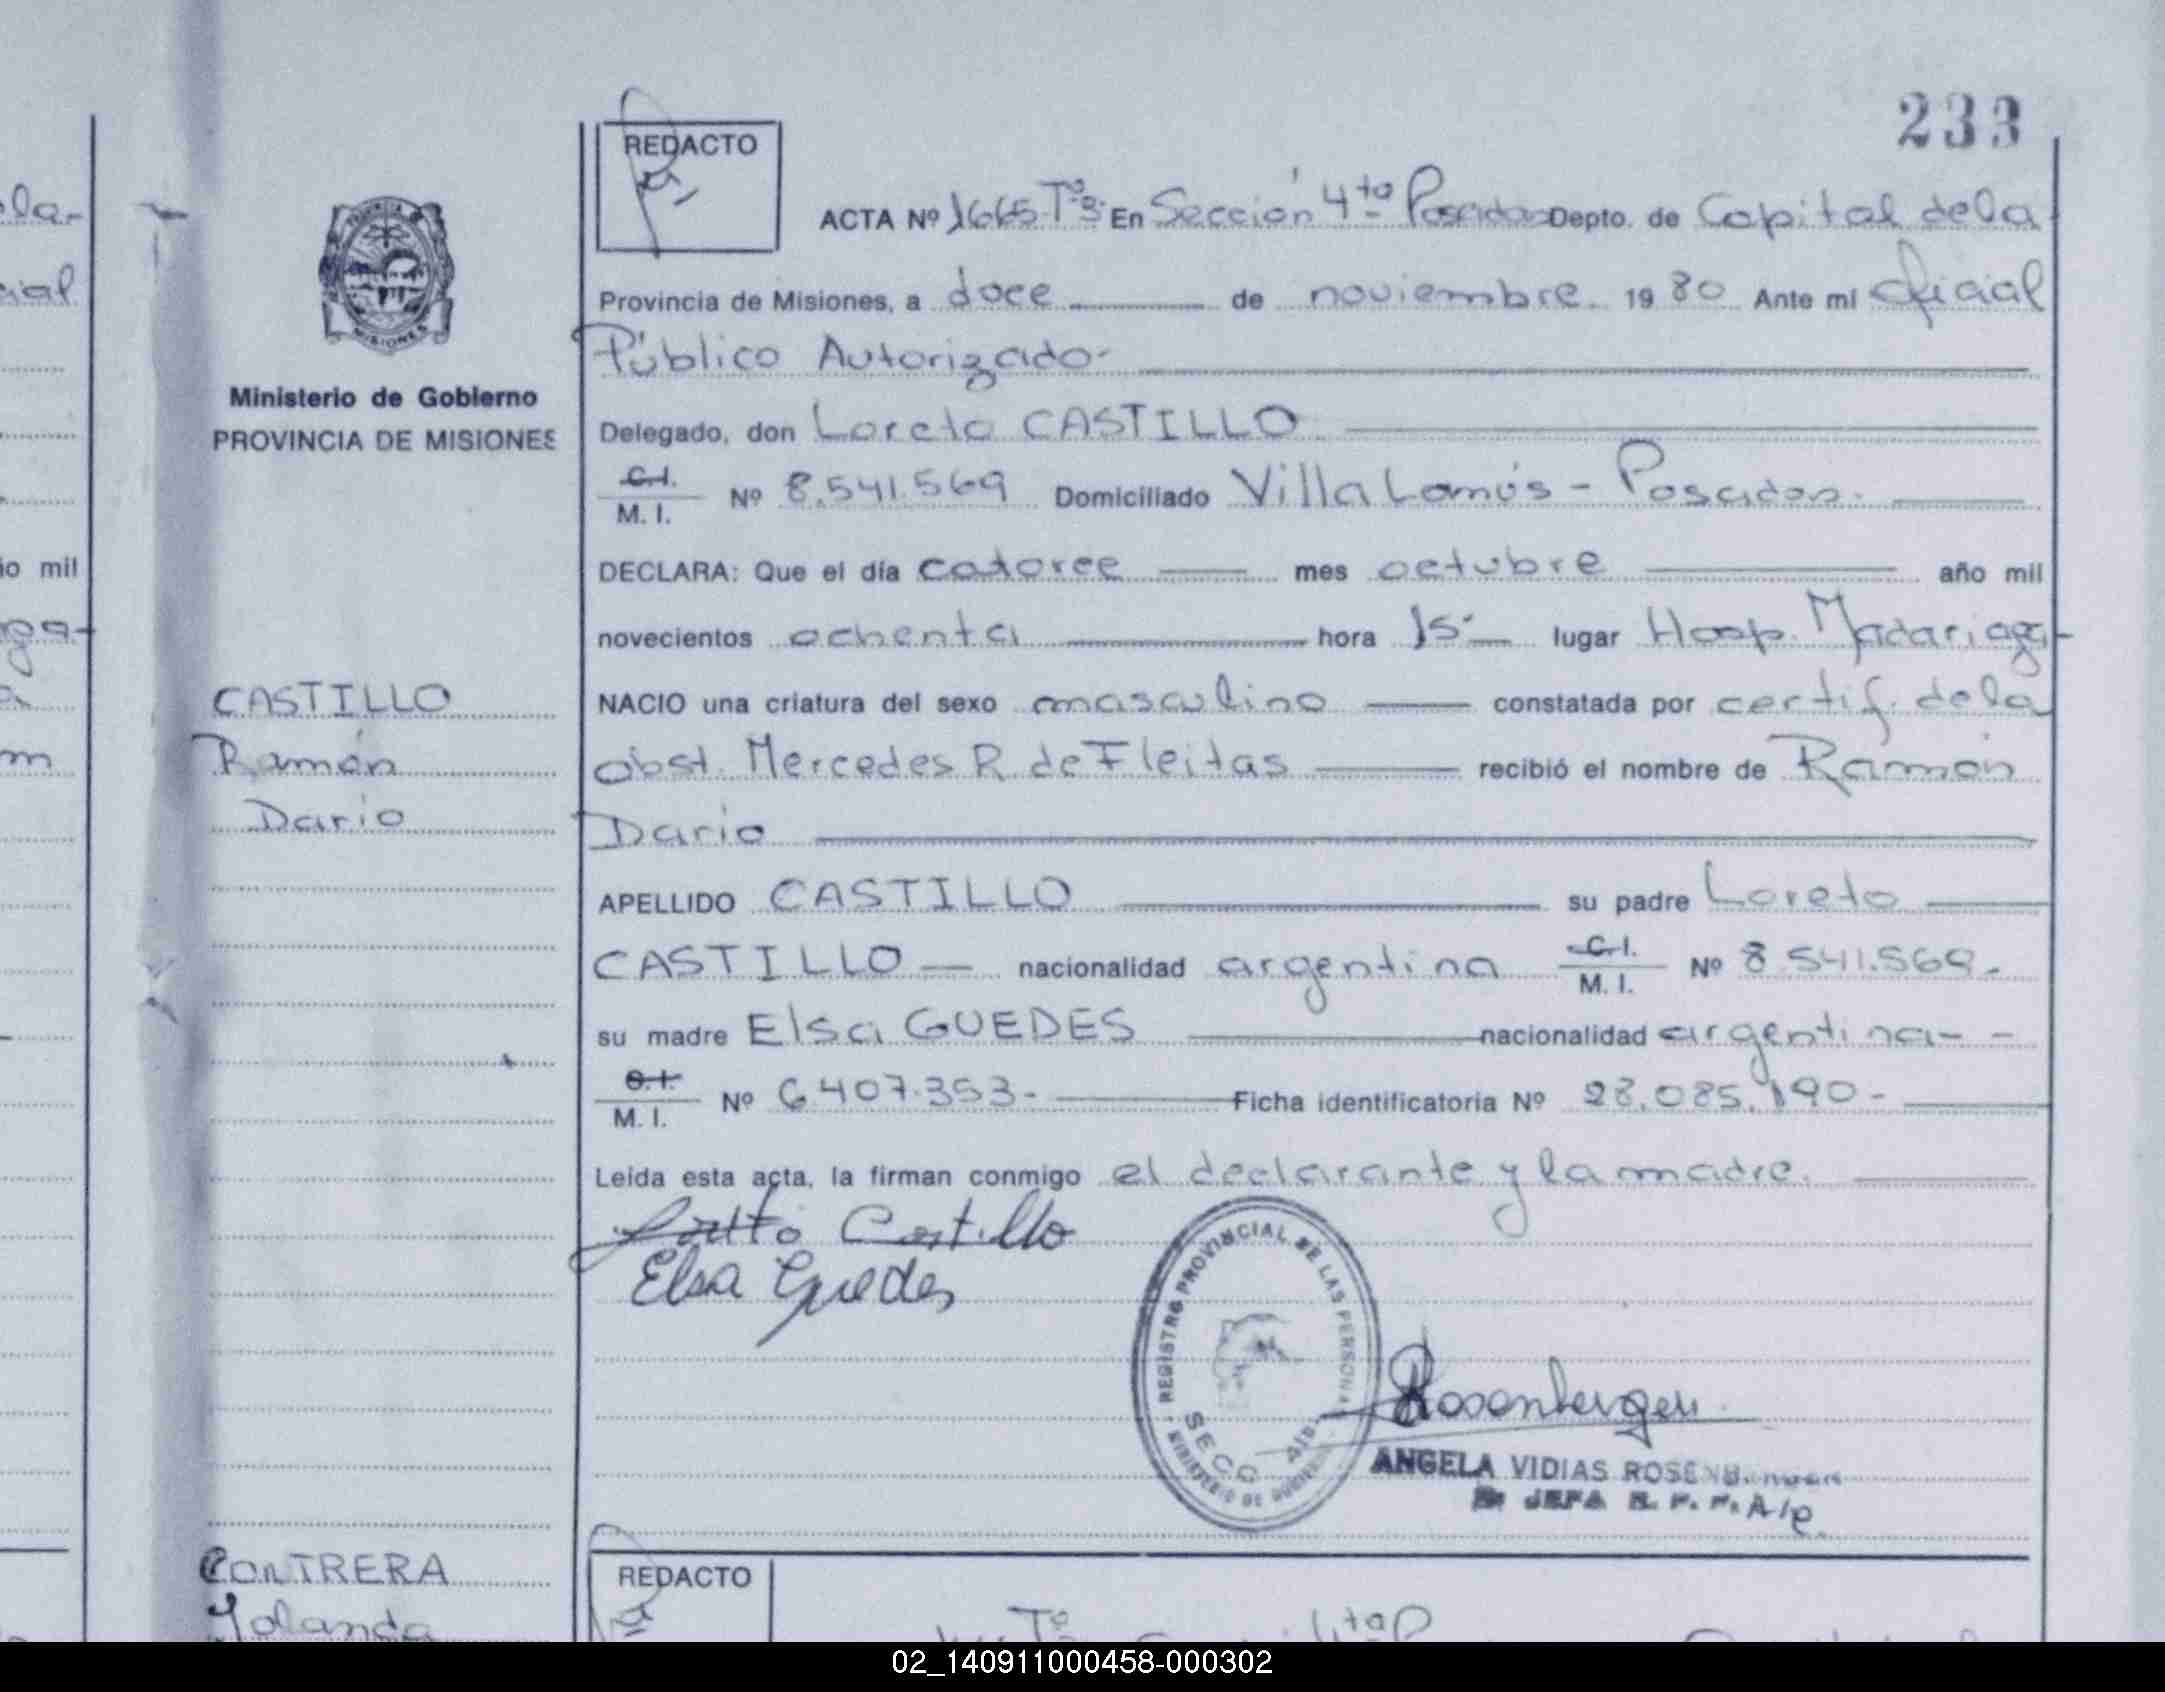 233
REDACTO
ACTA Nº 1665 Tº 3 En Sección 4ta Posadas Depto. de Capital de la
Provincia de Misiones, a doce de noviembre 1980 Ante mí Oficial
Público Autorizado
Ministerio de Gobierno
PROVINCIA DE MISIONES
Delegado, don Loreto CASTILLO
C.I.
M. I. Nº 8.541.569 Domiciliado Villa Lanús - Posadas.
DECLARA: Que el día catorce mes octubre año mil
novecientos ochenta hora 15 lugar Hosp. Madariaga
CASTILLO
Ramón
Dario
NACIO una criatura del sexo masculino constatada por certif. de la
obst. Mercedes R. de Fleitas recibió el nombre de Ramón
Dario
APELLIDO CASTILLO su padre Loreto
CASTILLO nacionalidad argentina C.I. M. I. Nº 8.541.569.-
su madre Elsa GUEDES nacionalidad argentina - -
C.I.
M. I. Nº 6.407.353.- Ficha identificatoria Nº 28.085.190.-
Leída esta acta, la firman conmigo el declarante y la madre.
Loreto Castillo
Elsa Guedes
REGISTRO PROVINCIAL DE LAS PERSONAS
SECC. 4ta
MINISTERIO DE GOBIERNO
ANGELA VIDIAS
JEFA R. P. P. A/c.
CONTRERA
Yolanda
REDACTO
02_140911000458-000302